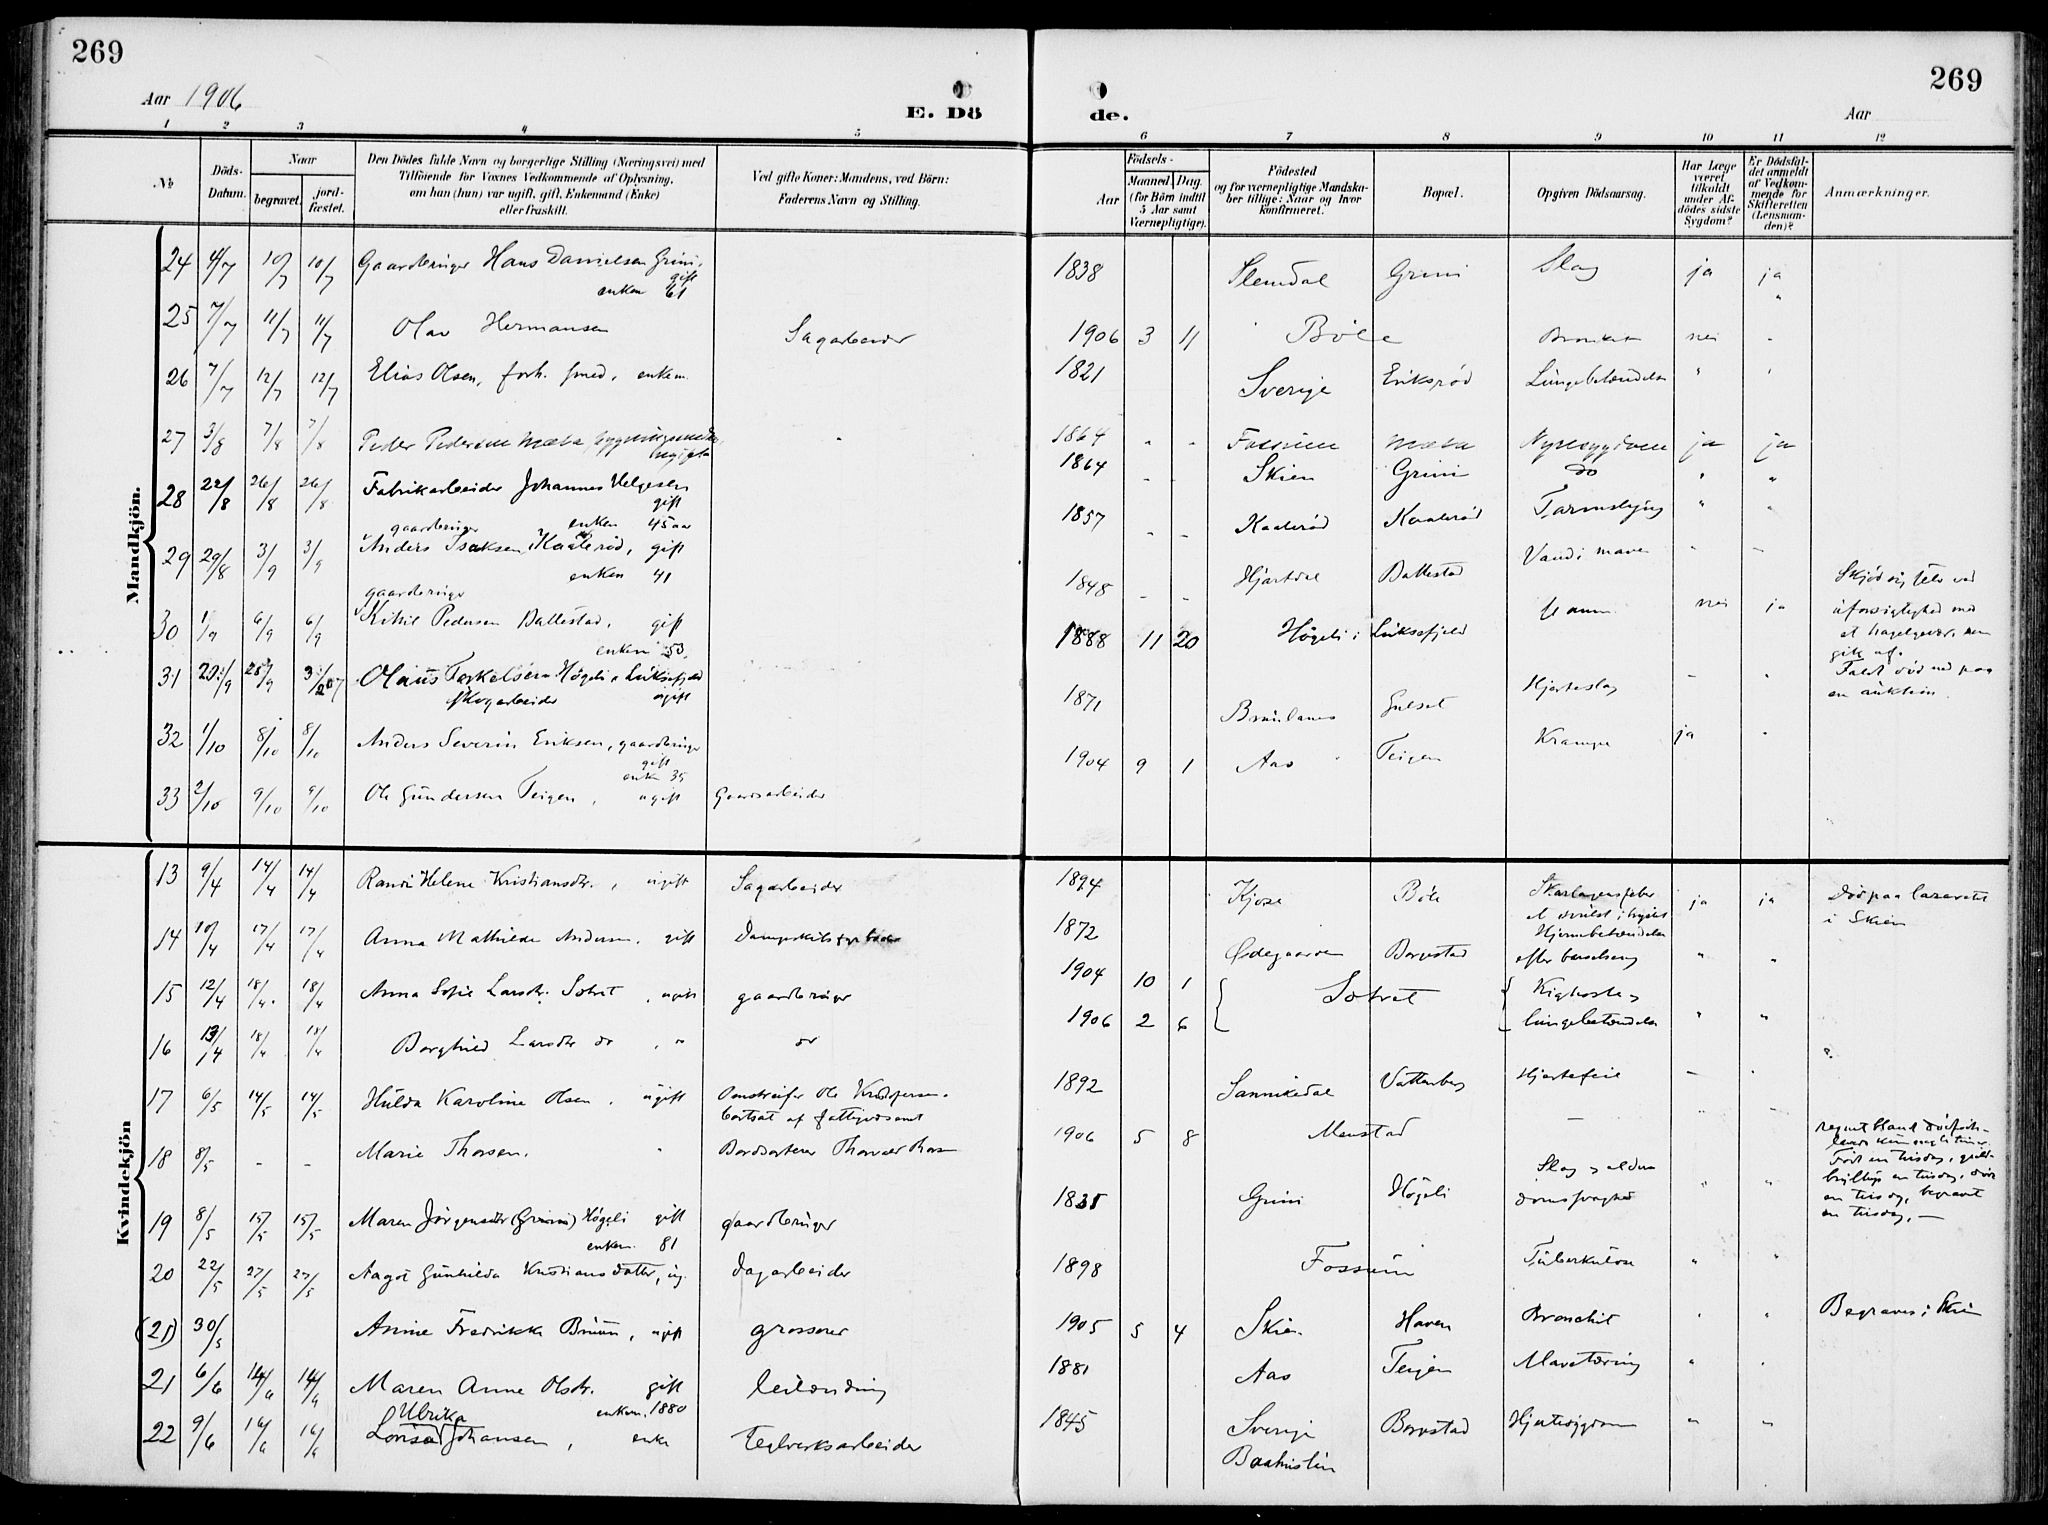 269
269
Aar 1906
E. Dö
de.
Aar
1 2 3 4 5
6 7 8 9 10 11 12
No
Döds-
Datum.
Naar
begravet.
jord-
fæstet.
Den Dödes fulde Navn og borgerlige Stilling (Næringsvei) med
Tilföiende for Voxnes Vedkommende af Oplysning,
om han (hun) var ugift, gift, Enkemand (Enke)
eller fraskilt.
Ved gifte Koner: Mandens, ved Börn:
Faderens Navn og Stilling.
Födsels-
Aar
Maaned. Dag.
(for Börn indtil
5 Aar samt
Værnepligtige).
Födested
og for værnepligtige Mandska-
ber tillige: Naar og hvor
konfirmeret.
Bopæl.
Opgiven Dödsaarsag.
Har Læge
været
tilkaldt
under Af-
dödes sidste
Sygdom?
Er Dödsfal-
det anmeldt
af Vedkom-
mende for
Skifteretten
(Lensman-
den)?
Anmærkninger.
Mandkjön.
24 4/7 10/7 10/7 Gaardbruger Hans Danielsen Grini, gift 1838 Slemdal Grini Slag ja ja
enken 61 "
25 7/7 11/7 11/7 Olav Hermansen Sagarbeider 1906 3 11 Böle nei
26 7/7 12/7 12/7 Elias Olsen, forh. smed, enkem. 1821 Sverige Eriksrød Lungebetændelse "
27 3/8 7/8 7/8 Peder Pedersen Mæla 1864 - - Fossum Mæla Nyresygdom ja ja
28 22/8 26/8 26/8 Fabrikarbeider Johannes Helgesen gift 1864 - - Skien Grini do " "
enken 45 aar
gaardbruger
29 29/8 3/9 3/9 Anders Isaksen Kaalerød, gift 1857 - - Kaalerød Kaalerød " "
enken 41
gaardbruger
30 1/9 6/9 6/9 Kitil Pedersen Ballestad, gift 1848 - - Hjartdal Ballestad Vand i maven - -
enken 53
31 20/9 25/9 Olaus Torkelsen Høgeli i Luksefjeld 1888 11 20 Høgeli i Luksefjeld nei ja Skjød sig selv ved
uforsigtighed med
et hagelgevær, som
gik af.
Skogarbeider ugift
32 1/10 8/10 8/10 Anders Severin Eriksen, gaardbruger 1871 Gulset Hjerteslag - " Faldt død ned paa
en auktion.
gift
enken 35
33 2/10 9/10 9/10 Ole Gundersen Teigen, ugift Gaardsarbeider 1904 9 1 Aas Teigen Krampe ja "
Kvindekjön
13 9/4 14/4 14/4 Randi Helene Kristiansdtr., ugift Sagarbeider 1894 Kjose Böle Skarlagensfeber ja ja Död paa lazarettet
i Skien
14 10/4 17/4 17/4 Anna Mathilde Andersen, gift 1872 Ødegaarden Borgestad Hjernebetændelse
efter barselseng " "
15 12/4 18/4 18/4 Anna Sofie Larsdtr. , ugift gaardbruger 1904 10 1 Kighoste og
16 13/4 18/4 18/4 Borghild Larsdtr do , " do 1906 2 6 lungebetændelse " "
17 6/5 14/5 14/5 Hulda Karoline Olsen, ugift Omstreifer Ole Kristofersen
bortsat af fattigvæsenet 1892 Sannikedal Hjertefeil -
18 8/5 - - Marie Thorsen. " 1906 5 8 Menstad -
19 8/5 15/5 15/5 Maren Jörgensdtr (Grini) Høgeli gift gaardbruger 1835 Grini Høgeli Slag og alder-
domssvaghed " "
Født en tirsdag, guld-
bryllup en tirsdag, död
en tirsdag, begravet
en tirsdag, —
enkem. 81
20 22/5 27/5 27/5 Aagot Gunhilda Kristiansdatter, ug. Dagarbeider 1898 Fossum Tuberkulose " "
(21) 30/5 Anine Fredrikke Bruun, ugift grosserer 1905 5 4 Skien Haven Bronchit " " Begraves i Skien
21 6/6 14/6 14/6 Maren Anne Olsdtr. gift leilænding 1881 Aas Teigen Mavetæring " "
enkem. 1880
Ulrika
22 9/6 16/6 16/6 Lovisa Johansen, enke Teglverksarbeider 1845 Sverige Borgestad Hjertesygdom " "
Baahuslen